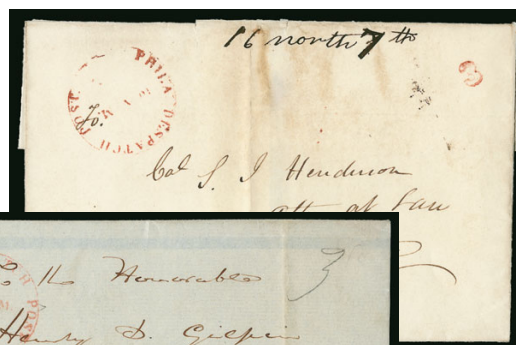 16 north 7th
3
PHILA DESPATCH POST.
To.
Col S. J Henderson
att at Law
To the Honorable
3
H POST
Henry D. Gilpin